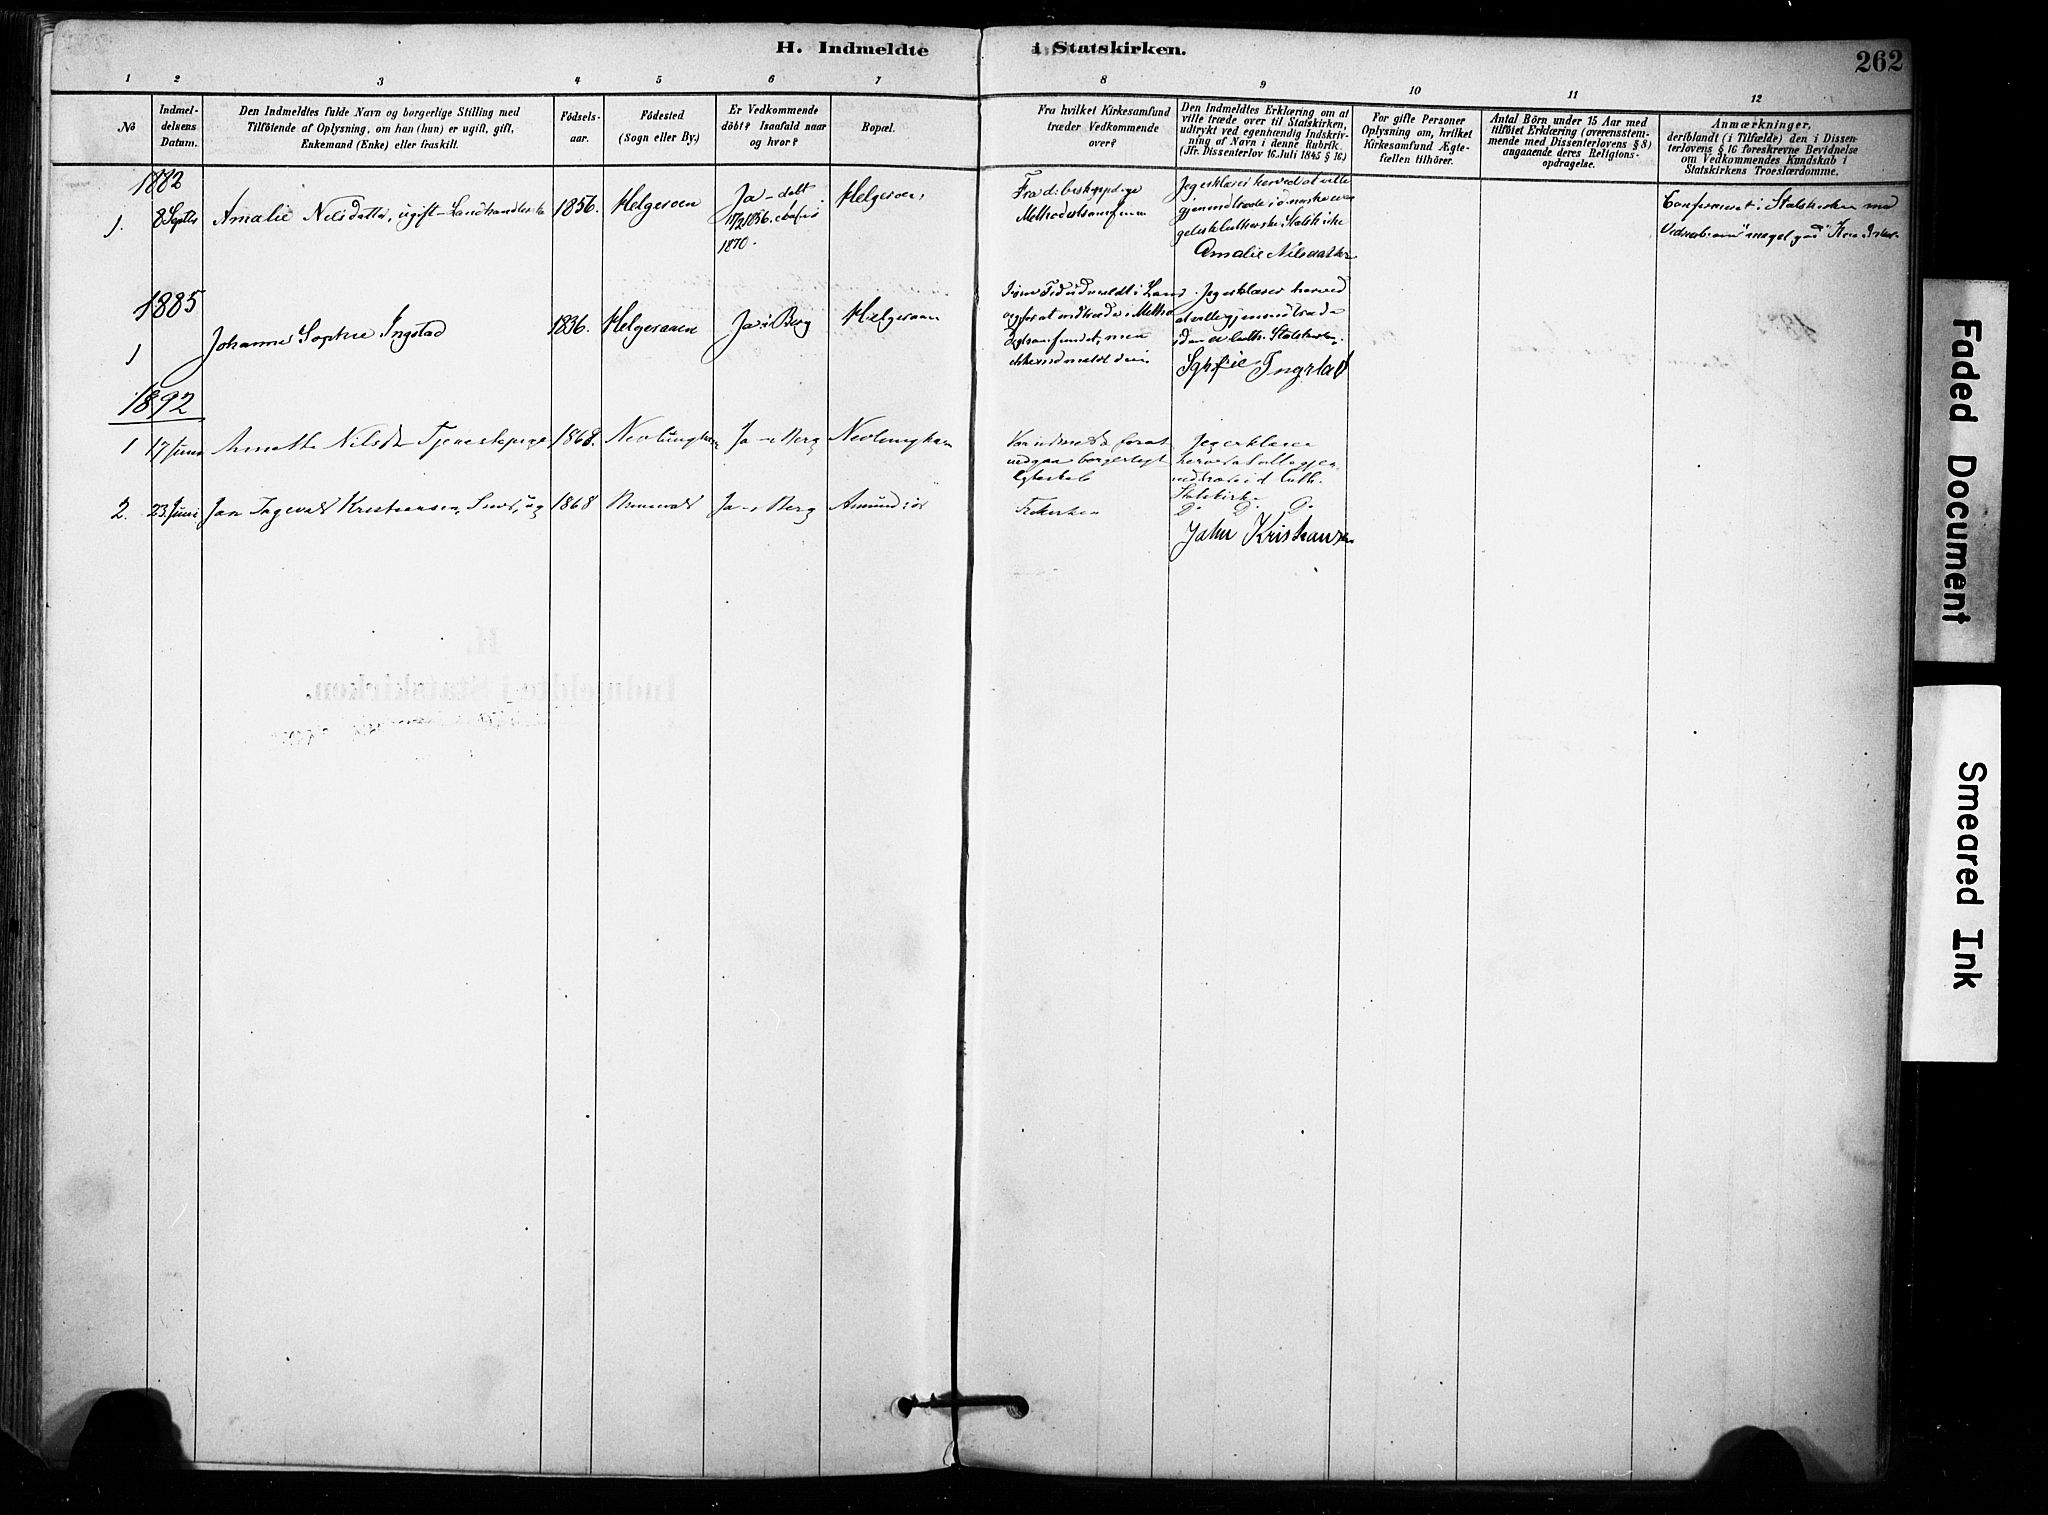 H. Indmeldte i Statskirken.
262
1 2 3 4 5 6 7 8 9 10 11 12
No
Indmel-
delsens
Datum.
Den Indmeldtes fulde Navn og borgerlige Stilling med
Tilföiende af Oplysning, om han (hun) er ugift, gift,
Enkemand (Enke) eller fraskilt.
Födsels-
aar.
Födested
(Sogn eller By.)
Er Vedkommende
döbt? Isaafald naar
og hvor?
Bopæl.
Fra hvilket Kirkesamfund
træder Vedkommende
over?
Den Indmeldtes Erklæring om at
ville træde over til Statskirken,
udtrykt ved egenhændig Indskriv-
ning af Navn i denne Rubrik.
(Jfr. Dissenterlov 16. Juli 1845 § 16)
For gifte Personer
Oplysning om, hvilket
Kirkesamfund Ægte-
fællen tilhörer.
Antal Börn under 15 Aar med
tilföiet Erklæring (overensstem-
mende med Dissenterlovens § 8)
angaaende deres Religions-
opdragelse.
Anmærkninger,
deriblandt (i Tilfælde) den i Dissen-
terlovens § 16 foreskrevne Bevidnelse
om Vedkommendes Kundskab i
Statskirkens Troeslærdomme.
1882
1. 8 Septbr Amalie Nilsdatter, ugift 1856. Helgeroen Ja - döbt
1856.
1870.
Helgeroen
Fra d. biskoppelige
Methodistsamfund
Jeg erklærer herved at ville
gjenindtræde i d norske evan
geliskluthersk Statskirke
Amalie Nilsdatter
Confirmeret i Statskirken med
meget god
1885
1 Johanne Sophie Ingstad 1836. Helgeraaen Ja i Berg Helgeraaen
Jeg erklærer herved
at ville gjenindtræde
i den ev. luth. Statskirke.
Sophie Ingstad
1892
1 17 Juni Nilsdt Tjenestepige 1868. Nevlunghavn Ja - i Berg Nevlunghavn
Jeg erklærer
herved at ville gjen
indtræde i d luth.
Statskirke
2. 23 Juni Jan Ingevald Kristiansen, 1868 Ja - i Berg
Frikirken
D. D. D.
John Kristiansen
H.
Indmeldte i Statskirken.
Faded Document
Smeared Ink